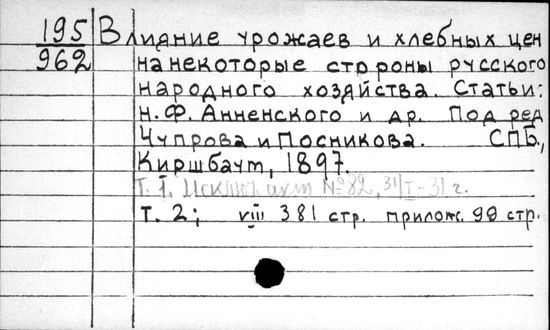 195 Влияние урожаев и хлебных цен
962 на некоторые стороны русского
народного хозяйства. Статьи:
Н.Ф. Анненского и др. Под ред
Чупрова и Посникова. СПБ.,
Киршбаум, 1897.
Т. 1. Исключ. акт №82, 31/I-31 г.
Т. 2; VIII 381 стр. прилож. 99 стр.